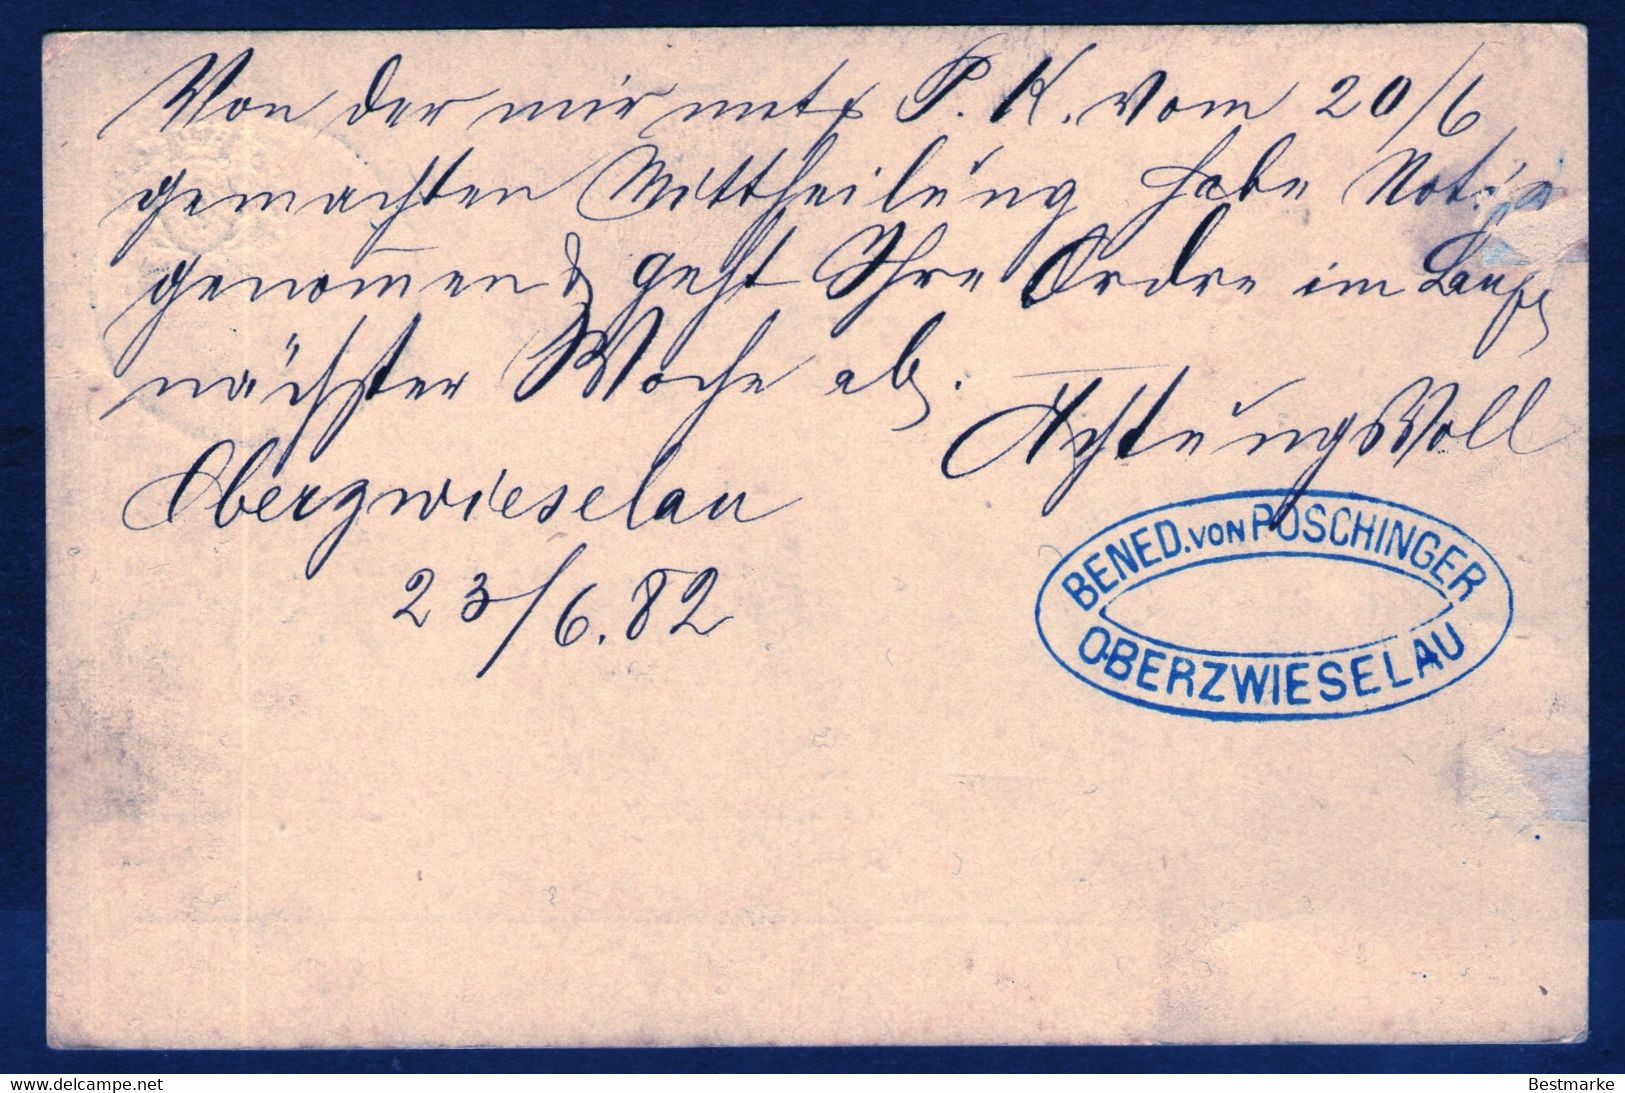 Von der mir mitt P. K. vom 20/6
gemachten Mittheilung habe Notiz
genom̄en & geht Ihre Ordre im Laufe
nächster Woche ab.
Achtungsvoll
Oberzwieselau
23/6.82
BENED. VON POSCHINGER
OBERZWIESELAU
delcampe.net
Bestmarke